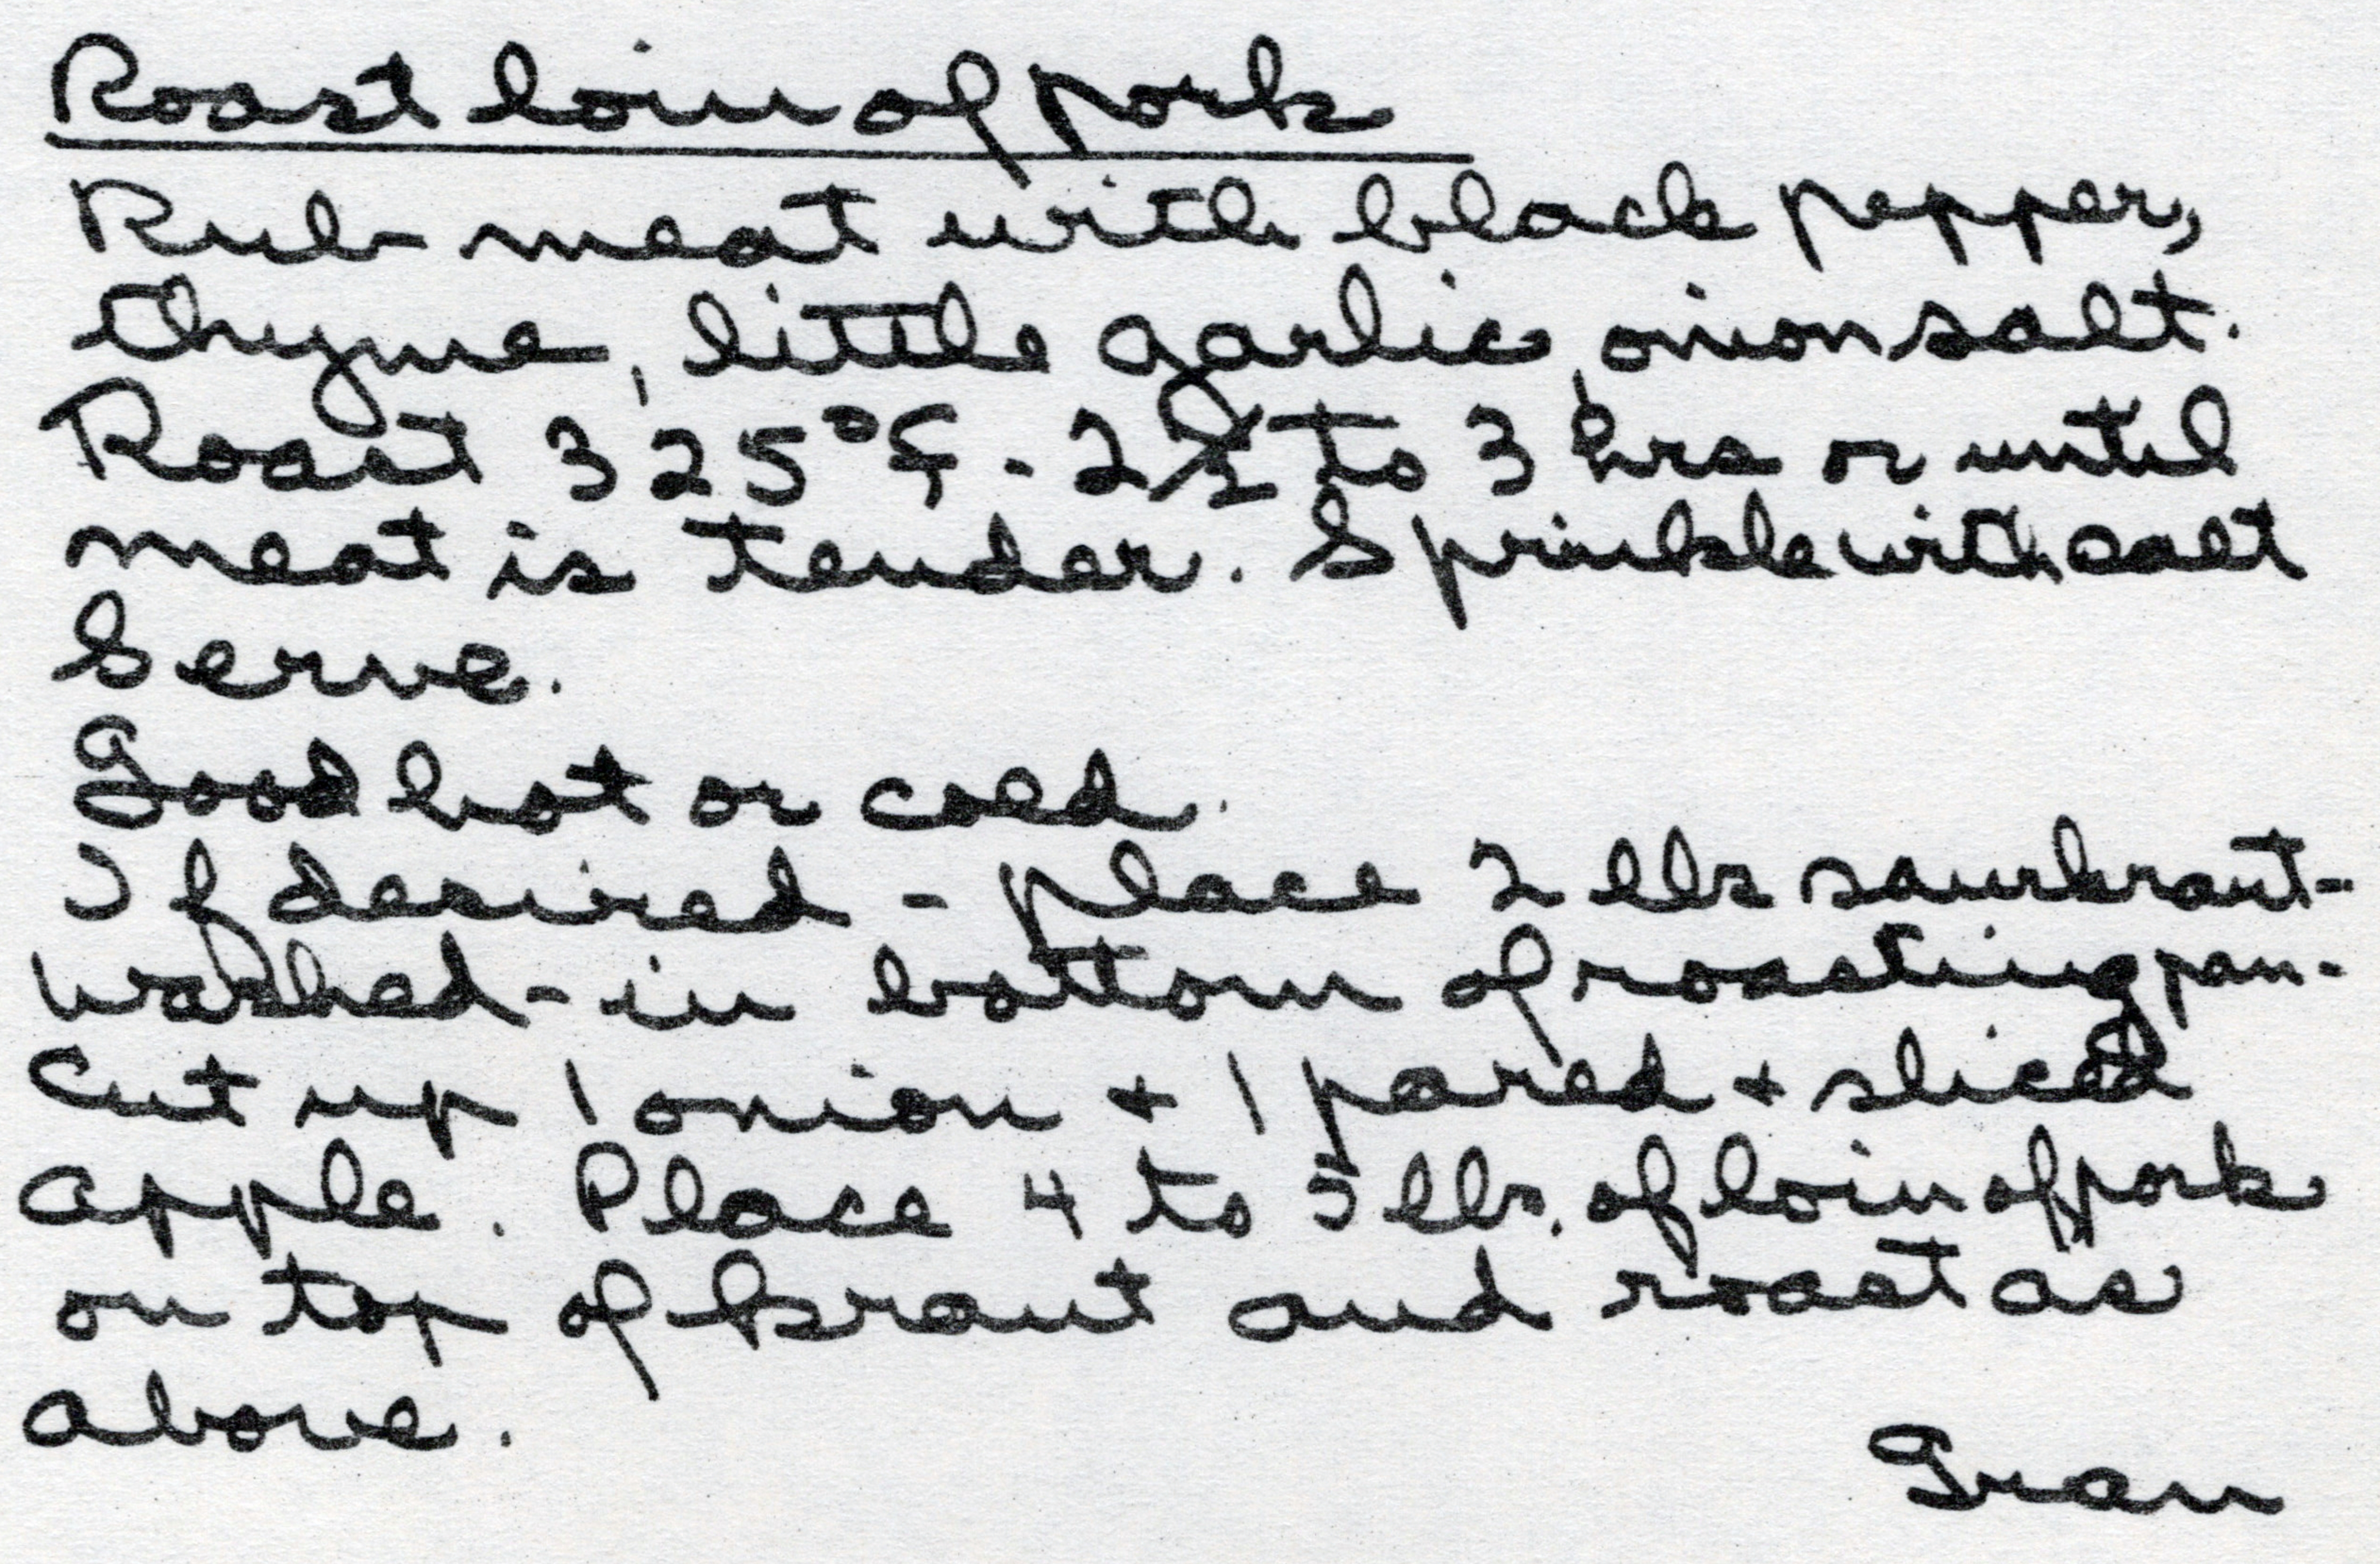 Roast loin of pork
Rub meat with black pepper,
thyme, little garlic, onion salt.
Roast 325°F - 2 1/2 to 3 hrs or until
meat is tender. Sprinkle with salt
Serve.
Good hot or cold.
If desired - place 2 lbs saurkraut-
washed - in bottom of roasting pan -
Cut up 1 onion + 1 pared + sliced
apple. Place 4 to 5 lbs. of loin of pork
on top of kraut and roast as
above.
Gran